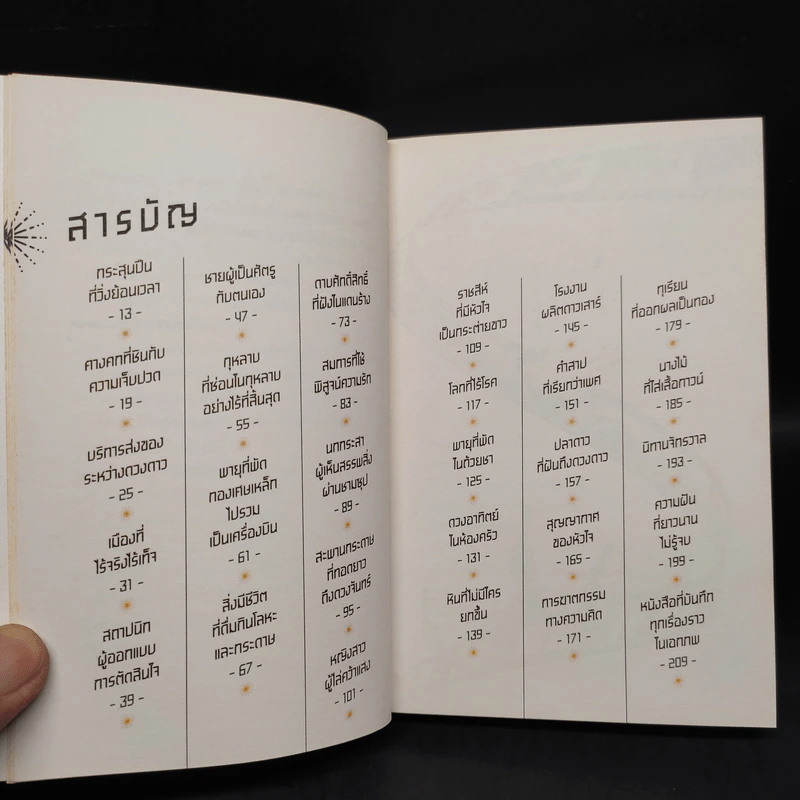 สารบัญ
กระสุนปืน
ที่วิ่งย้อนเวลา
- 13 -
คางคกที่ชินกับ
ความเจ็บปวด
- 19 -
บริการส่งของ
ระหว่างดวงดาว
- 25 -
เมืองที่
ไร้จริงไร้เท็จ
- 31 -
สถาปนิก
ผู้ออกแบบ
การตัดสินใจ
- 39 -
ชายผู้เป็นศัตรู
กับตนเอง
- 47 -
กุหลาบ
ที่ซ่อนในกุหลาบ
อย่างไร้ที่สิ้นสุด
- 55 -
พายุที่พัด
กองเศษเหล็ก
ไปรวม
เป็นเครื่องบิน
- 61 -
สิ่งมีชีวิต
ที่ดื่มกินโลหะ
และกระดาษ
- 67 -
ดาบศักดิ์สิทธิ์
ที่ฝังในแดนร้าง
- 73 -
สมการที่ใช้
พิสูจน์ความรัก
- 83 -
นกกระสา
ผู้เห็นสรรพสิ่ง
ผ่านชามซุป
- 89 -
สะพานกระดาษ
ที่ทอดยาว
ถึงดวงจันทร์
- 95 -
หญิงสาว
ผู้ไล่คว้าแสง
- 101 -
ราชสีห์
ที่มีหัวใจ
เป็นกระต่ายขาว
- 109 -
โลกที่ไร้โรค
- 117 -
พายุที่พัด
ในถ้วยชา
- 125 -
ดวงอาทิตย์
ในห้องครัว
- 131 -
หินที่ไม่มีใคร
ยกขึ้น
- 139 -
โรงงาน
ผลิตดาวเสาร์
- 145 -
คำสาป
ที่เรียกว่าเพศ
- 151 -
ปลาดาว
ที่ฝันถึงดวงดาว
- 157 -
สุญญากาศ
ของหัวใจ
- 165 -
การฆาตกรรม
ทางความคิด
- 171 -
ทุเรียน
ที่ออกผลเป็นทอง
- 179 -
นางไม้
ที่ใส่เสื้อกาวน์
- 185 -
นิทานจักรวาล
- 193 -
ความฝัน
ที่ยาวนาน
ไม่รู้จบ
- 199 -
หนังสือที่บันทึก
ทุกเรื่องราว
ในเอกภพ
- 209 -